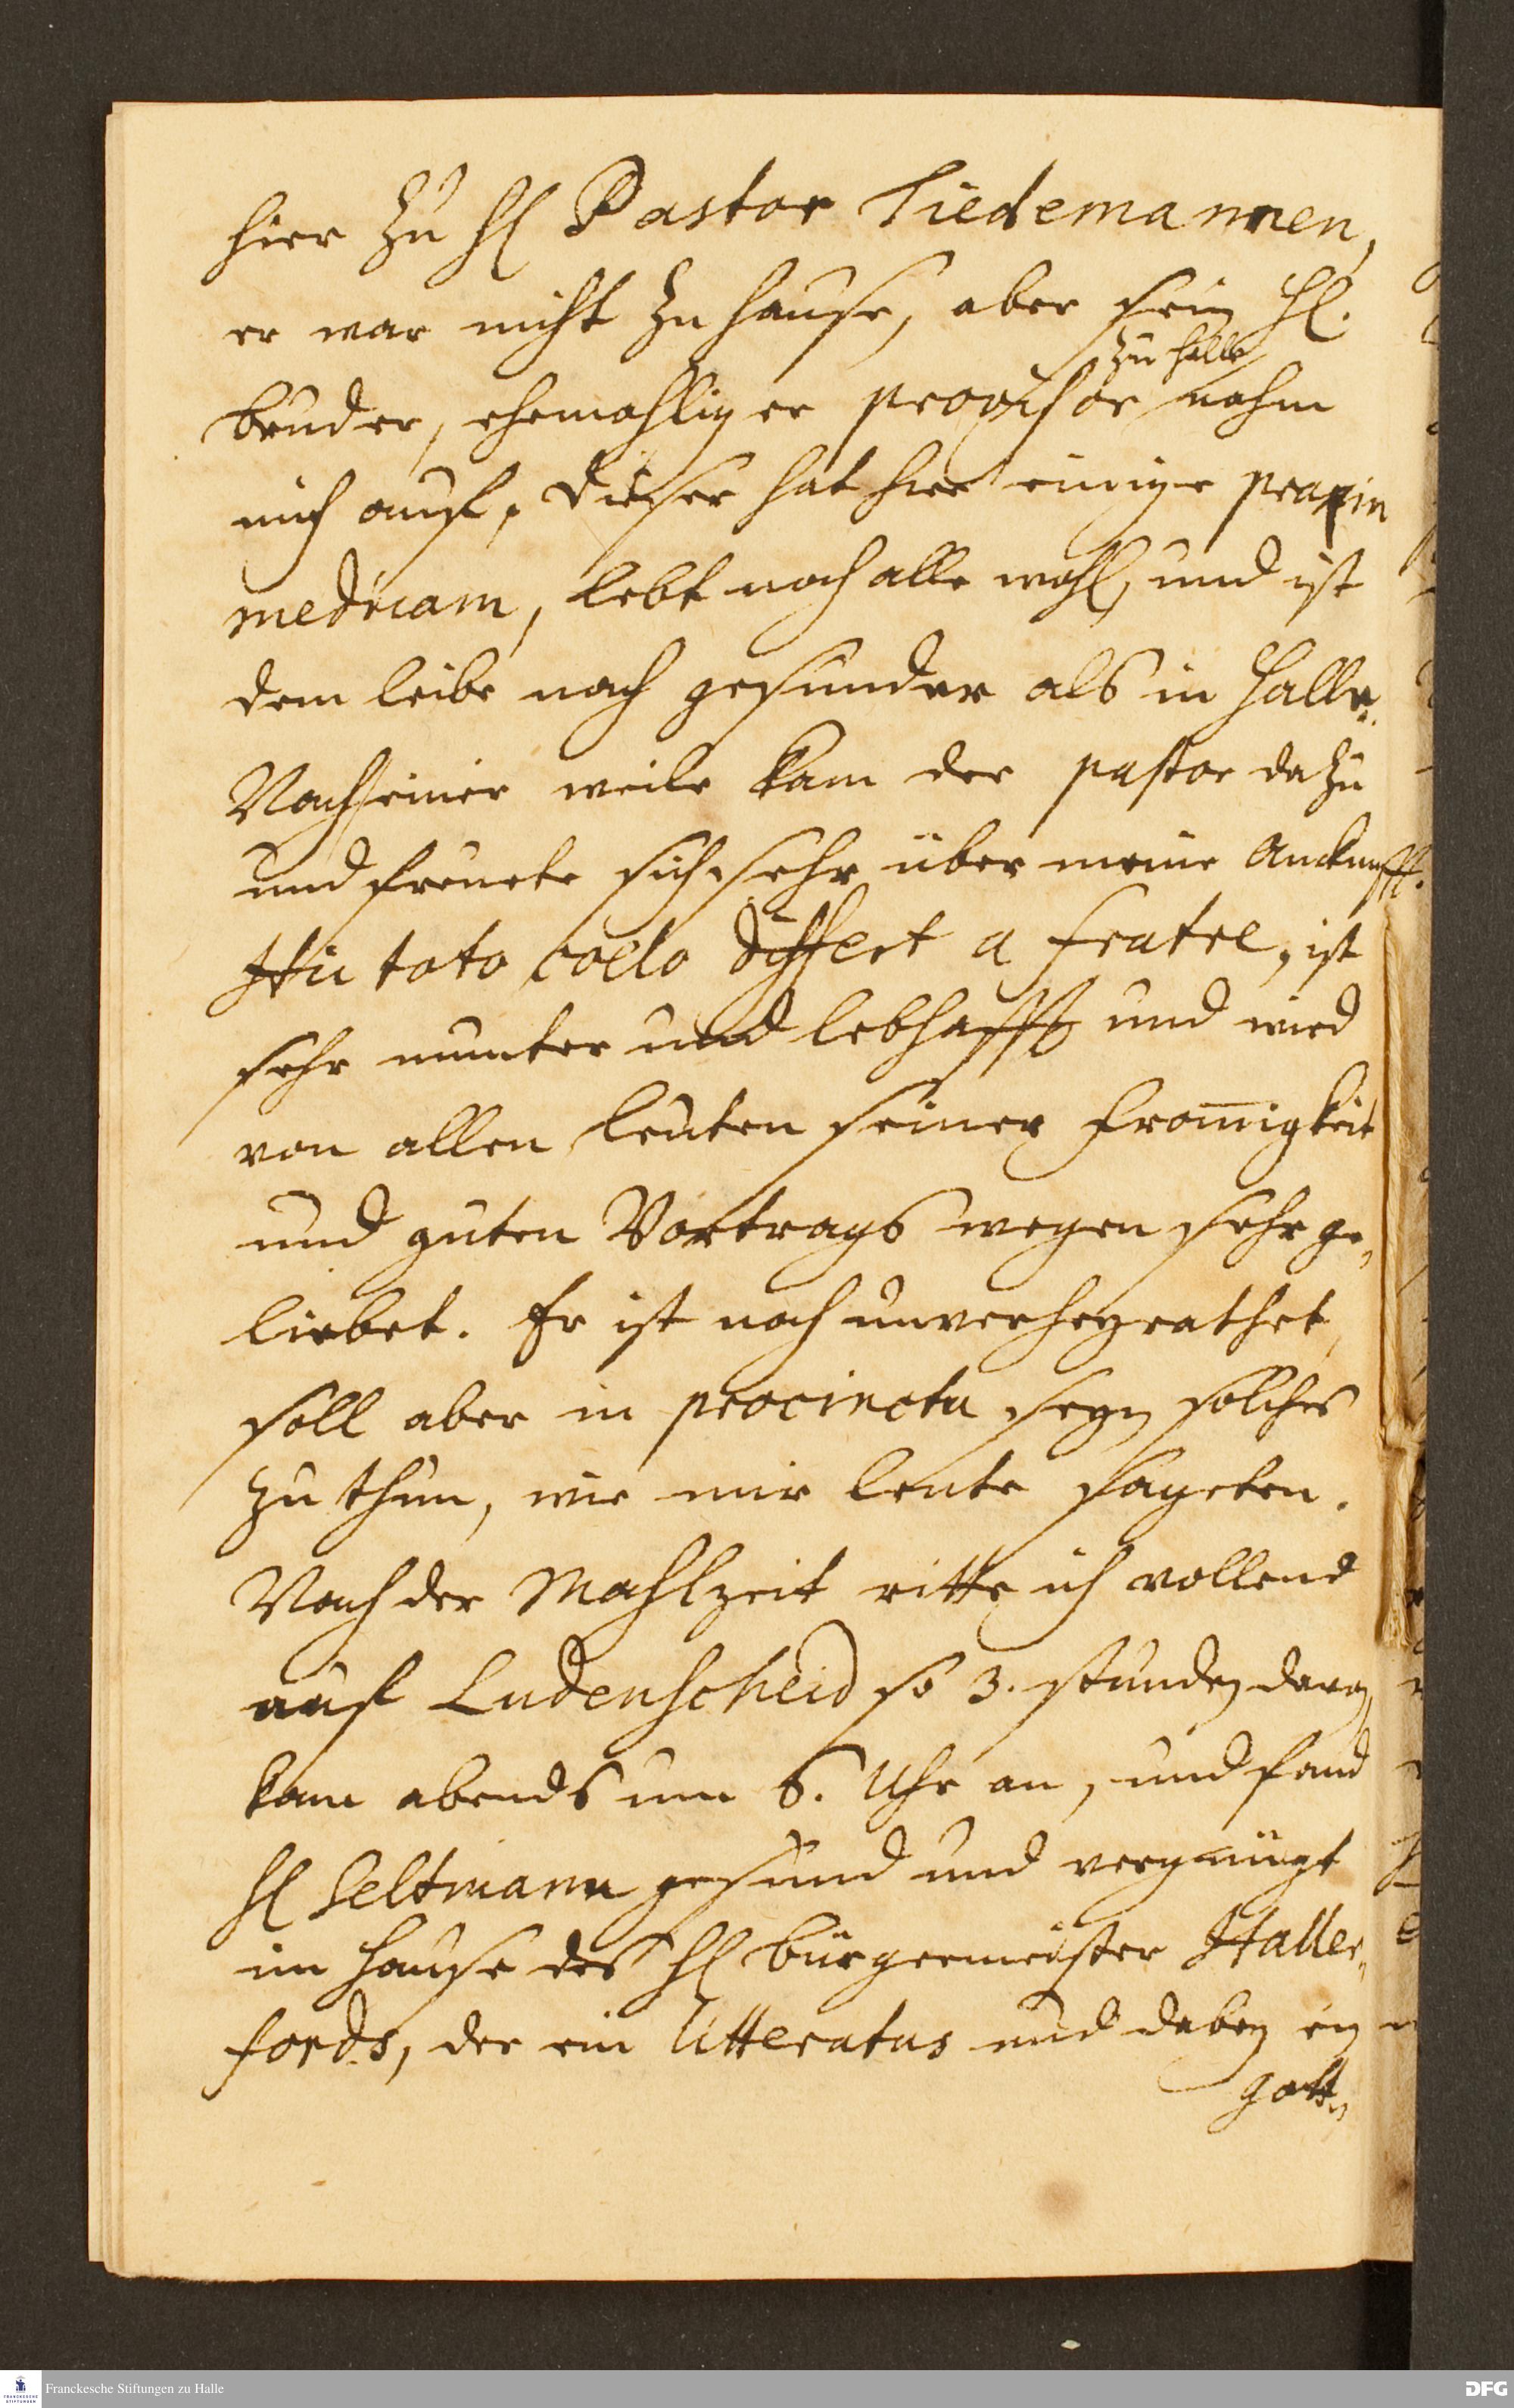 hier zu H Pastor Tiedemannen,
er war nicht zu hause, aber sein H.
zu Halle
bruder, ehemahliger provisor nahm
mich auf, dieser hat hier einige praxin
medicam, lebt noch alle wohl, und ist
dem leibe nach gesunder als in Halle.
Nach einer weile kam der pastor dazu
und freuete sich sehr über meine Anckunfft.
Hic toto coelo differt a fratre, ist
sehr munter und lebhafft und wird
von allen leuten seiner from̅igkeit
und guten Vortrags wegen sehr ge„
liebet. Er ist noch unverheyrathet,
soll aber in procinctu seyn solches
zu thun, wie mir leute sageten.
Nach der Mahlzeit ritte ich vollend
auf Ludenscheid so 3. stunden davon
kam abends um 6. Uhr an, und fand
H Seltmann gesund und vergnügt
im Hause des H bürgermeister Haller„
fords, der ein litteratus und dabey ein
gott„
Franckesche Stiftungen zu Halle
DFG